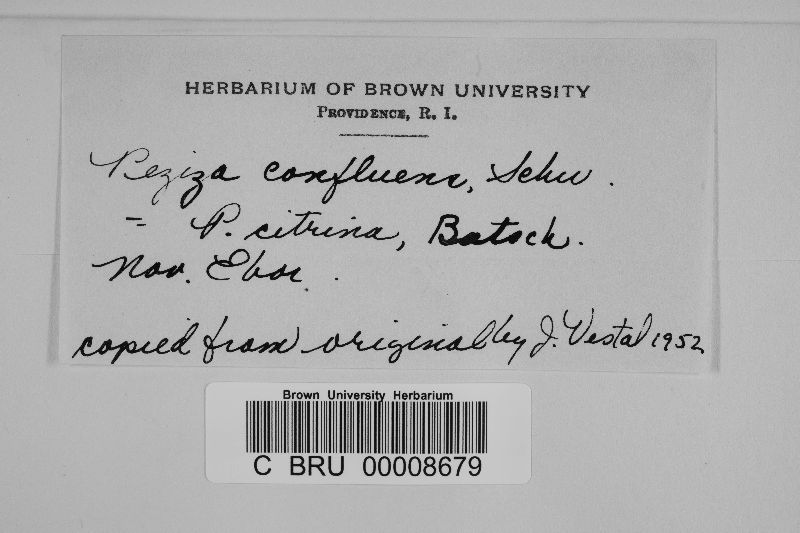 HERBARIUM OF BROWN UNIVERSITY
PROVIDENCE, R. I.
Peziza confluens, Schw.
= P. citrina, Batsch.
Nov. Ebor.
copied from original by J. Vestal 1952
Brown University Herbarium
C BRU 00008679